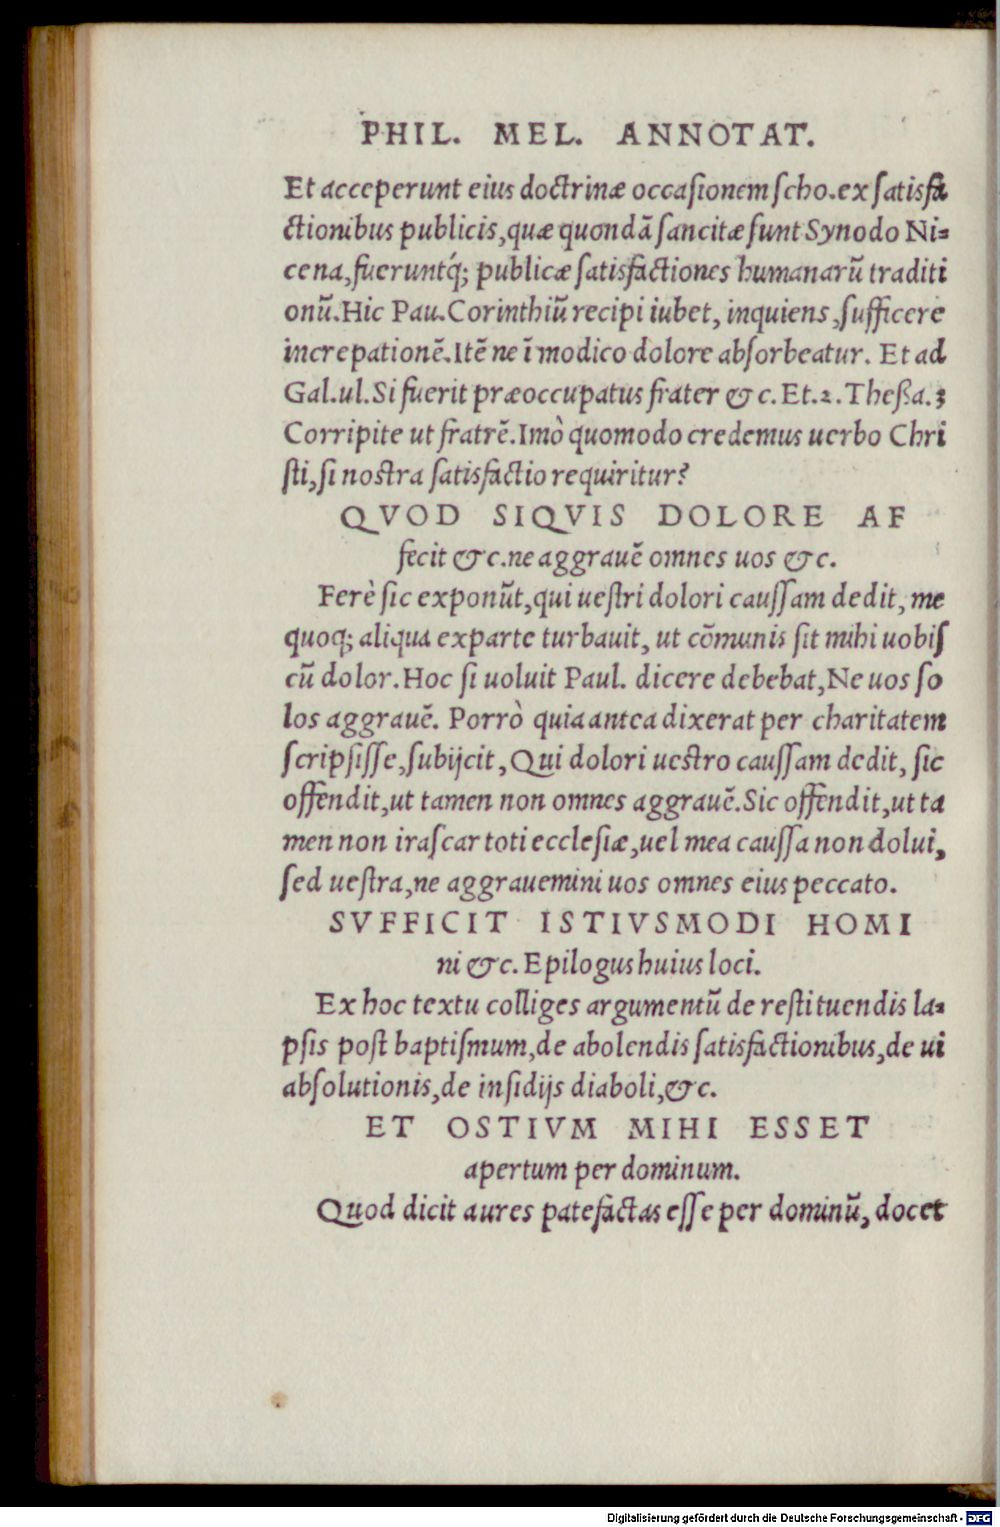 PHIL. MEL. ANNOTAT.
Et acceperunt eius doctrinæ occaſionem ſcho. ex ſatisfa
ctionibus publicis, quæ quondã ſancitæ ſunt Synodo Ni-
cena, fuerunt&#xE8BF;́; publicæ ſatisfactiones humanarũ traditi
onũ. Hic Pau. Corinthiũ recipi iubet, inquiens, ſufficere
increpationẽ. Itẽ ne ĩmodico dolore abſorbeatur. Et ad
Gal. ul. Si fuerit præoccupatus frater &c. Et. 2. Theßa. 3
Corripite ut fratrẽ. Imò quomodo credemus uerbo Chri
ſti, ſi noſtra ſatisfactio requiritur?
QVOD SIQVIS DOLORE AF
fecit &c. ne aggrauẽ omnes uos &c.
Ferè ſic exponũt, qui ueſtri dolori cauſſam dedit, me
quoq; aliqua ex parte turbauit, ut cõmunis ſit mihi uobiſ
cũ dolor. Hoc ſi uoluit Paul. dicere debebat, Ne uos ſo
los aggrauẽ. Porrò quia antea dixerat per charitatem
ſcripſiſſe, ſubijcit, Qui dolori ueſtro cauſſam dedit, ſic
offendit, ut tamen non omnes aggrauẽ. Sic offendit, ut ta
men non iraſcar toti eccleſiæ, uel mea cauſſa non dolui,
ſed ueſtra, ne aggrauemini uos omnes eius peccato.
SVFFICIT ISTIVSMODI HOMI
ni &c. Epilogus huius loci.
Ex hoc textu colliges argumentũ de reſtituendis la-
pſis poſt baptiſmum, de abolendis ſatisfactionibus, de ui
abſolutionis, de inſidijs diaboli, &c.
ET OSTIVM MIHI ESSET
apertum per dominum.
Quod dicit aures patefactas eſſe per dominũ, docet
Digitalisierung gefördert durch die Deutsche Forschungsgemeinschaft - DFG